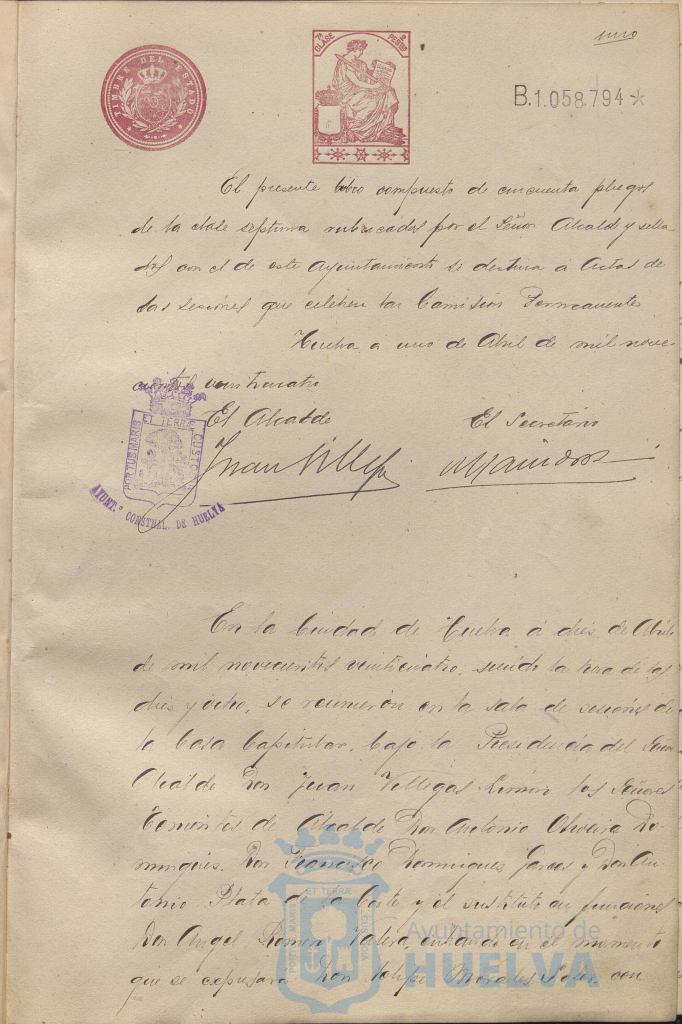 uno
TIMBRE DEL ESTADO
7ª CLASE 2 PESETAS
B.1.058.794*
El presente libro compuesto de cincuenta pliegos
de la clase septima rubricados por el Señor Alcalde y sella
dos con el de este Ayuntamiento se destina á Actas de
las sesiones que celebre la Comisión Permanente
Huelva a uno de Abril de mil nove
cientos veinticuatro
El Alcalde
El Secretario
Juan Villegas
PORTUS MARIS ET TERRÆ CUSTODIA
AYUNT.º CONSTNAL. DE HUELVA
En la Ciudad de Huelva á dies de Abril
de mil novecientos veinticuatro, siendo la hora de las
dies y ocho, se reunieron en la sala de sesiones de
la Casa Capitular, bajo la Presidencia del Señor
Alcalde Don Juan Villegas los Señores
Tenientes de Alcalde Don Antonio Oliveira Do-
mingues, Don Francisco Domingues Garces y Don An-
tonio Plata de la Corte y el sustituto en funciones
Don Angel Romen entrando en el momento
que se expresara Don Felipe Morales con
PORTUS MARIS ET TERRÆ CUSTODIA
Ayuntamiento de
HUELVA